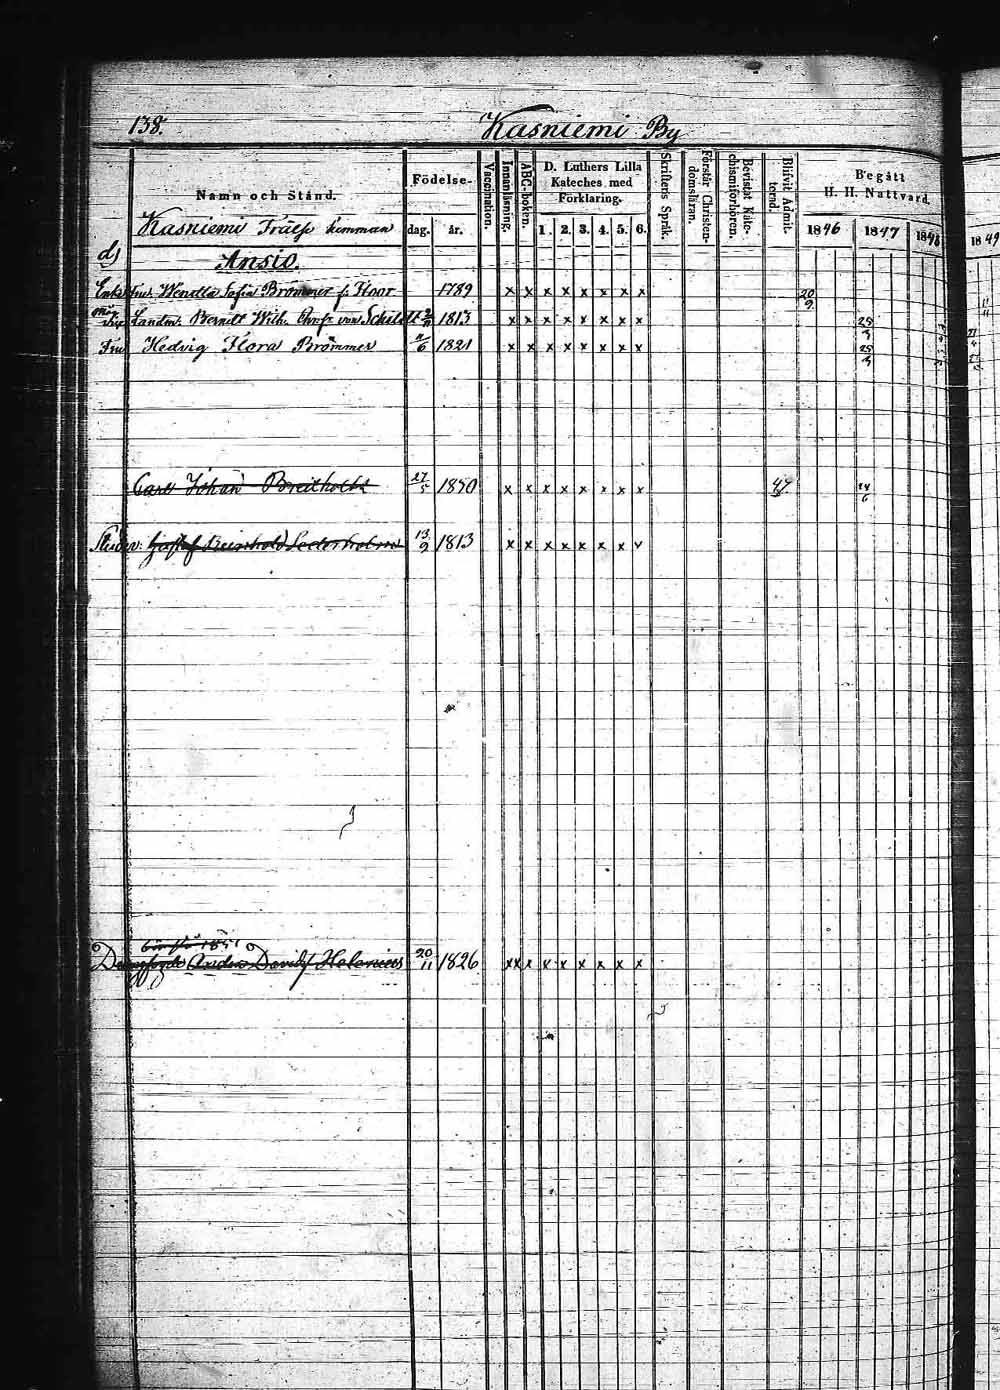 138.
Kasniemi By
Namn och Stånd.
Födelse-
dag. år.
Vaccination.
Innanläsning.
ABC-boken.
D. Luthers Lilla
Kateches med
Förklaring.
1. 2. 3. 4. 5. 6.
Skriftens Språk.
Förstår Christen-
domsläran.
Bevistat Kate-
chismiförhören.
Blifvit Admit-
terad.
Begått
H. H. Nattvard.
1846 1847 1848 1849
Kasniemi
Ansio.
Wendla Sofia Brömmer f. Hoor 1789 x x x x x x x x 20/9
Landtm. Berndt Wilh. von Schildt 1813 x x x x x x x x
Fru Hedvig Flora Brömmer 1821 x x x x x x x x
Carl Johan Breitholtz 27/5 1830 x x x x x x x x 47.
Gustaf Reinhold Cederholm 13/9 1813 x x x x x x x
Anders Davids Helenius 20/11 1826 x x x x x x x x x